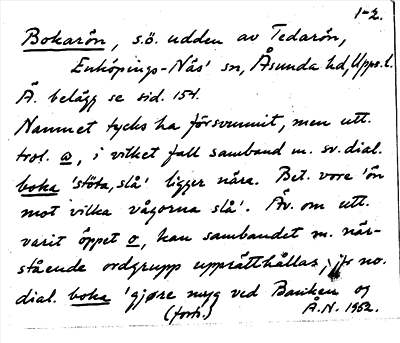 1-2.
Bokarön, s.ö. udden av Tedarön,
Enköpings-Näs' sn, Åsunda hd, Upps. l.
Ä. belägg se sid. 154.
Namnet tycks ha försvunnit, men utt.
trol. a, i vilket fall samband m. sv. dial.
boka 'stöta, slå' ligger nära. Bet. vore 'ön
mot vilka vågorna slå'. Äv. om utt.
varit öppet o, kan sambandet m. när-
stående ordgrupp upprätthållas, jfr no.
dial. boka 'gjøre myg ved Banken og
(forts.) Å.N. 1962.